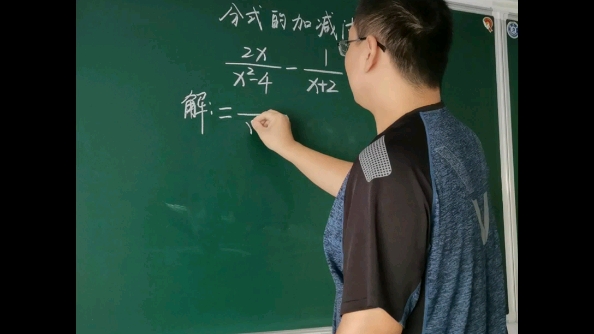 分式的加减法
2x/(x²-4) - 1/(x+2)
解:=